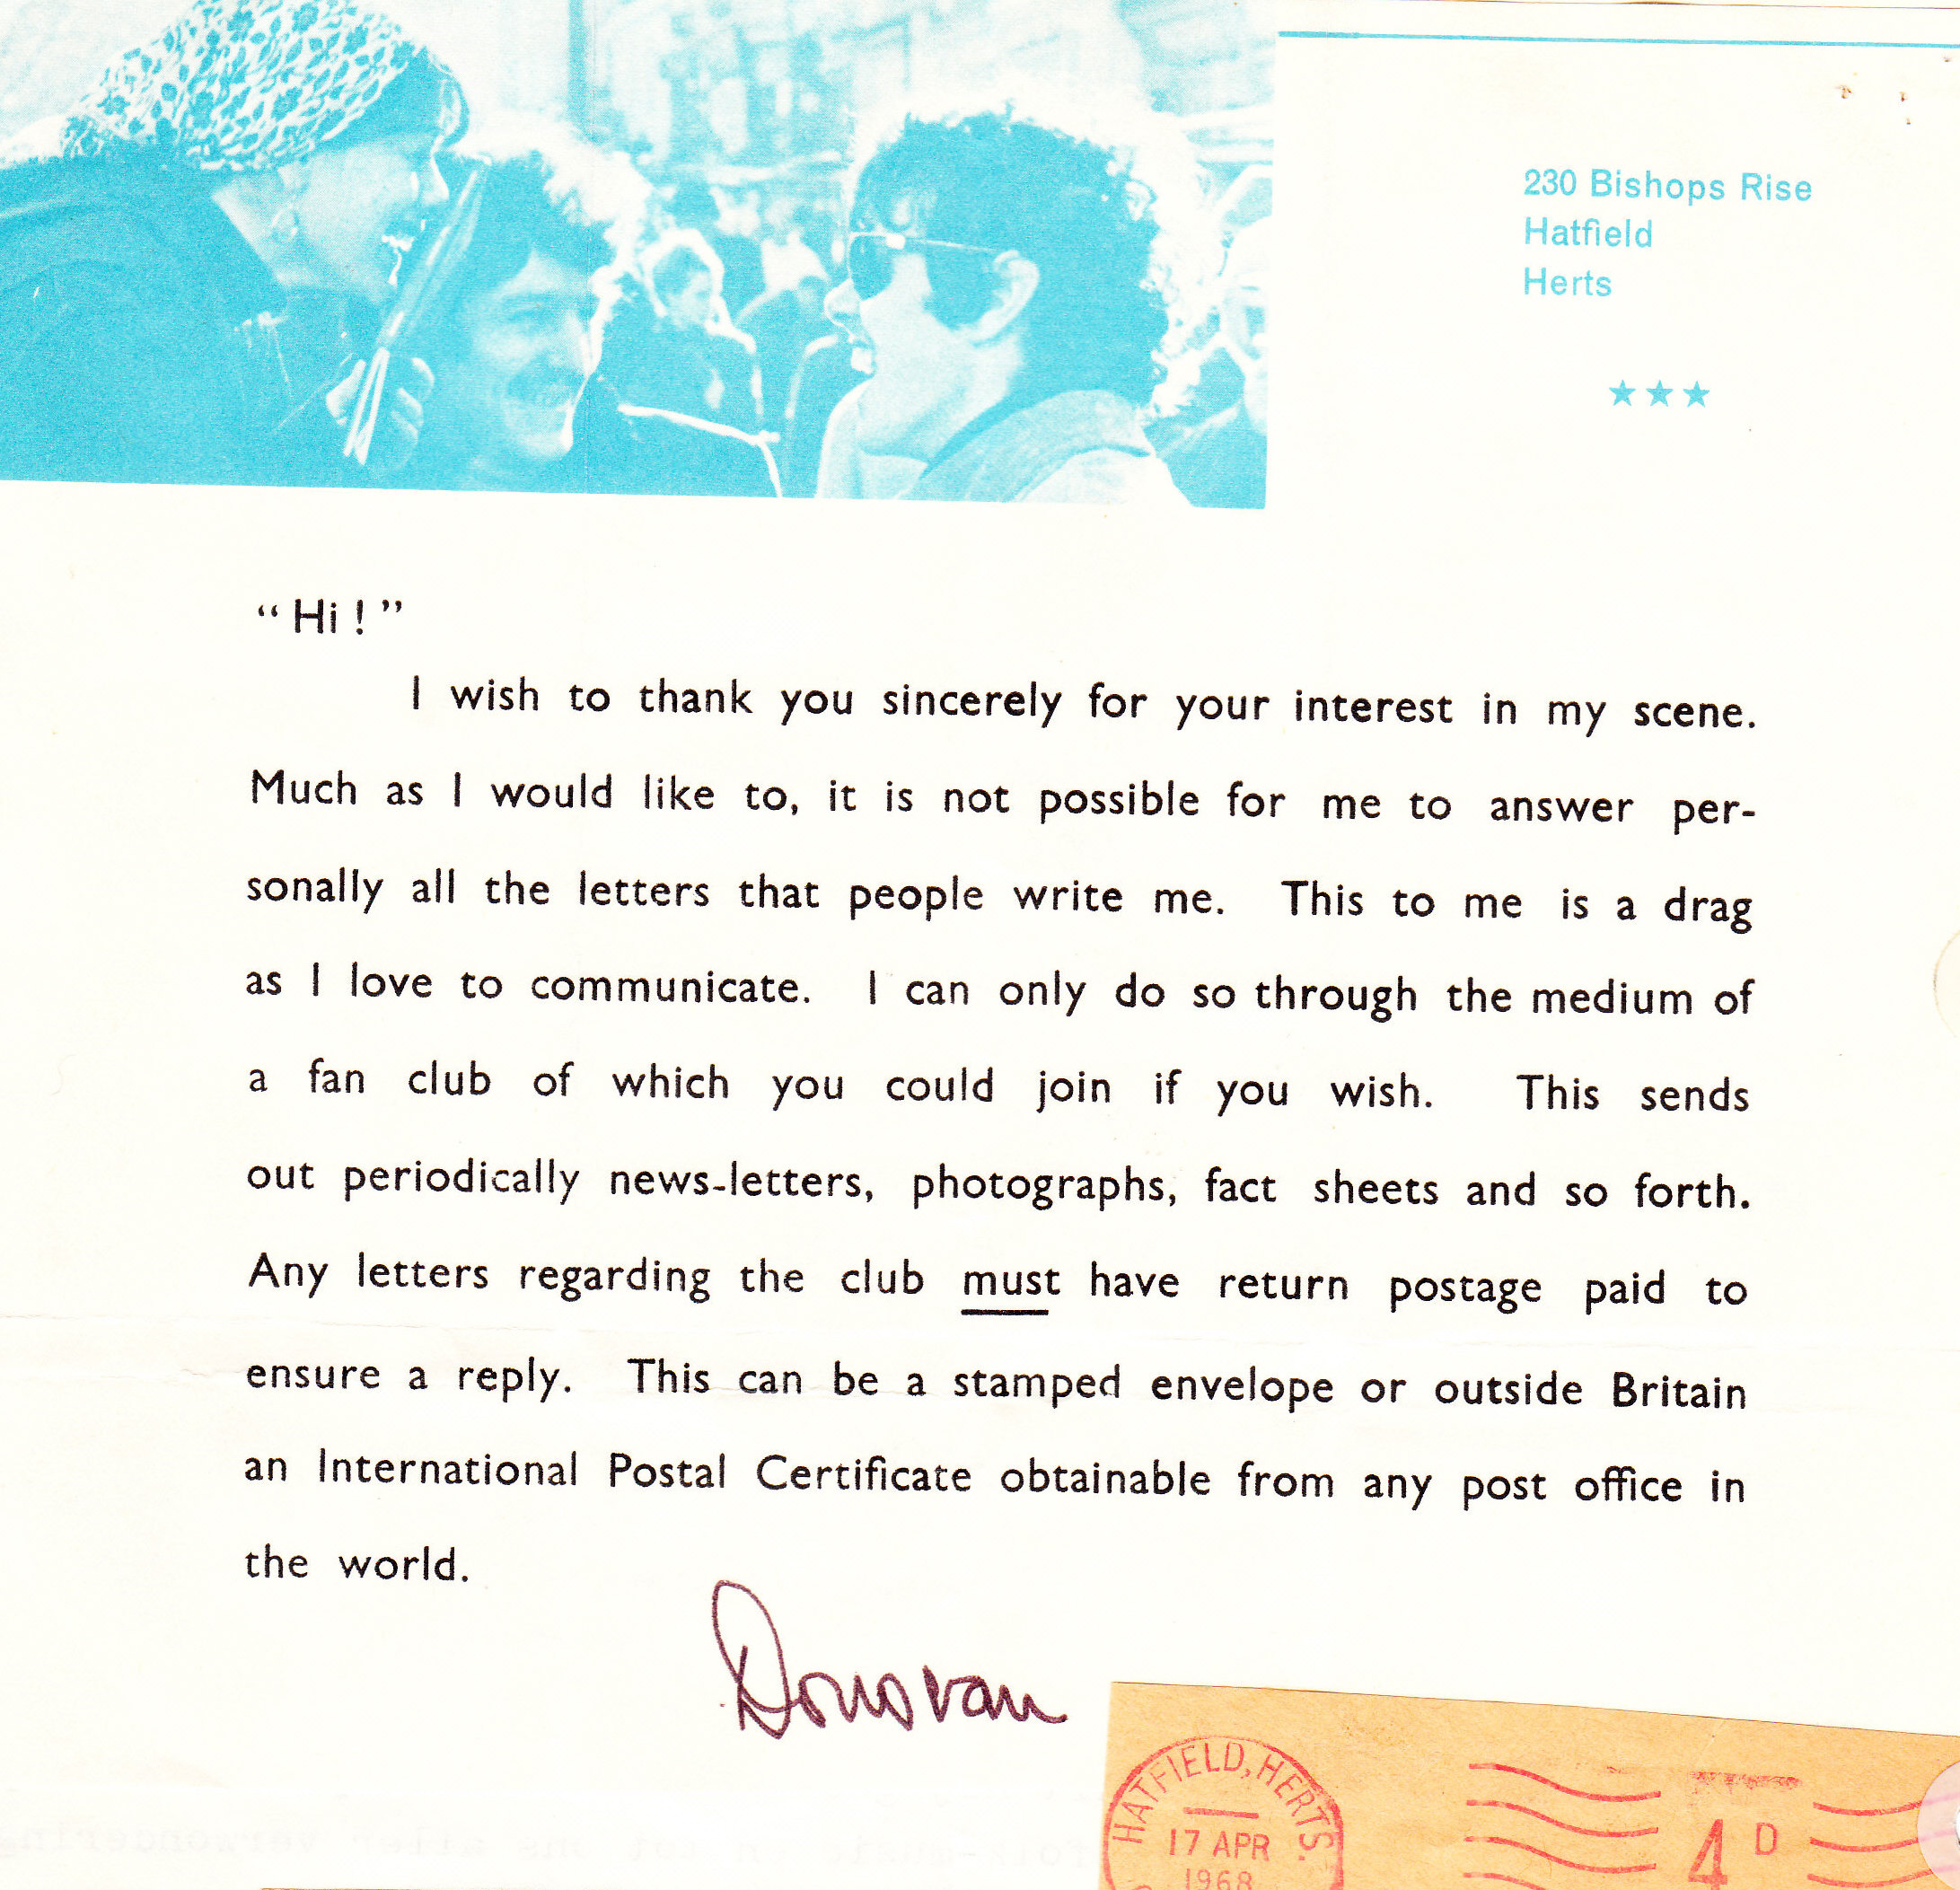 230 Bishops Rise
Hatfield
Herts
★★★
“Hi!”
I wish to thank you sincerely for your interest in my scene.
Much as I would like to, it is not possible for me to answer per-
sonally all the letters that people write me. This to me is a drag
as I love to communicate. I can only do so through the medium of
a fan club of which you could join if you wish. This sends
out periodically news-letters, photographs, fact sheets and so forth.
Any letters regarding the club must have return postage paid to
ensure a reply. This can be a stamped envelope or outside Britain
an International Postal Certificate obtainable from any post office in
the world.
Donovan
HATFIELD, HERTS.
17 APR
1968
4D